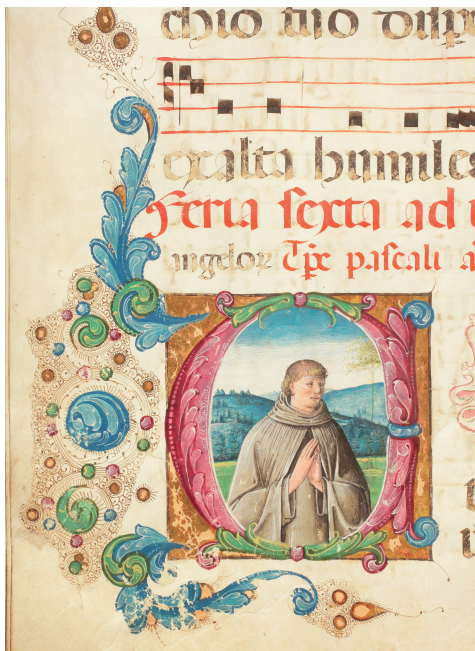 chio tuo disp
exalta humile
Feria sexta ad
angeloꝝ Tp̄e pascali a